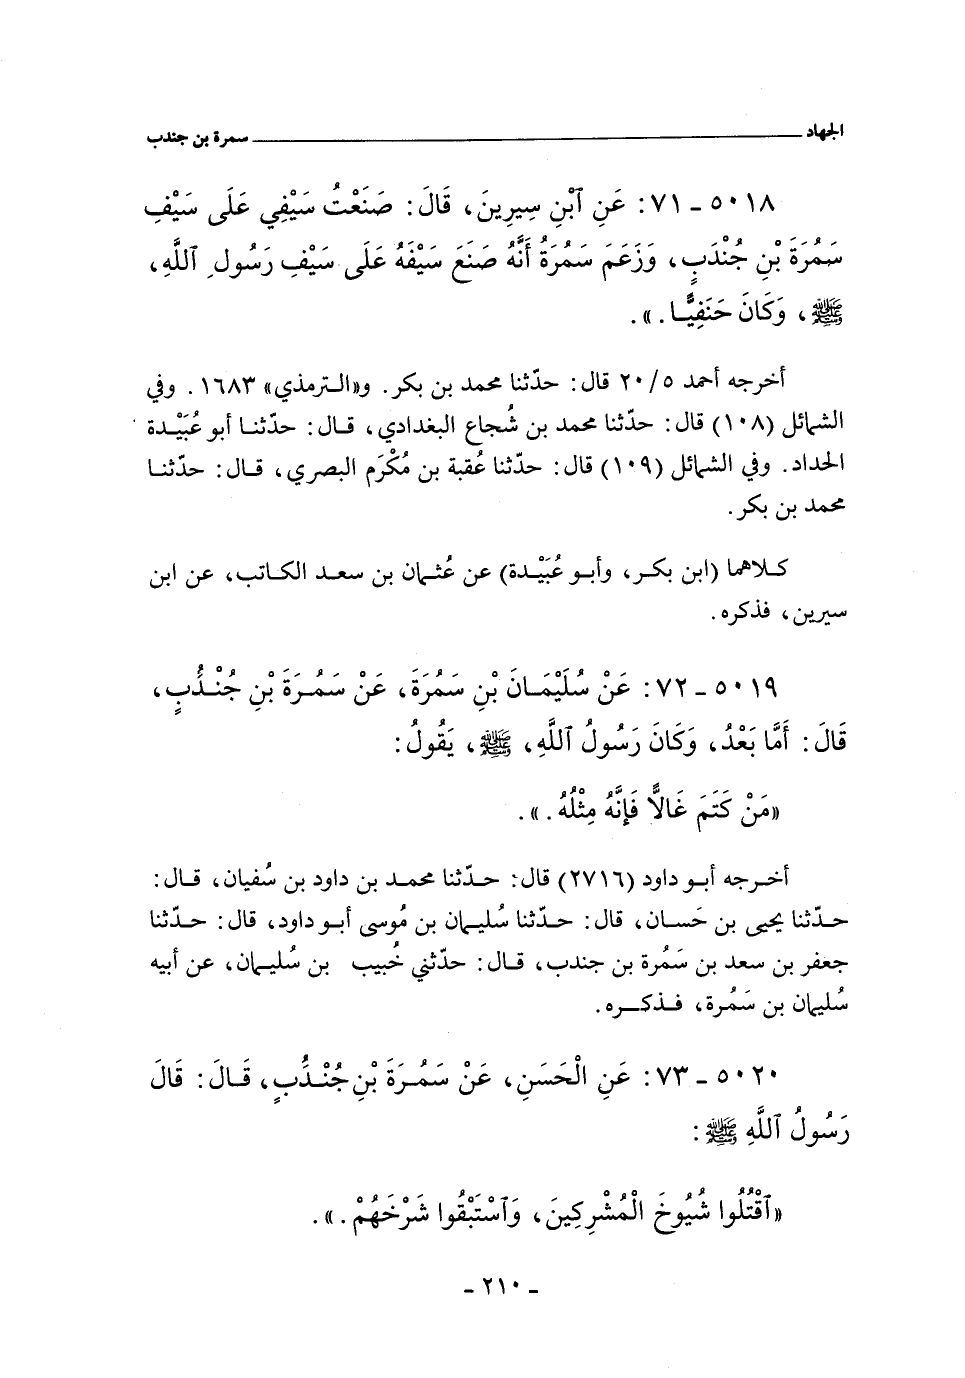 الجهاد ــــــــــ سمرة بن جندب
٥٠١٨ - ٧١: عَنِ ٱبْنِ سِيرِينَ، قَالَ: صَنَعْتُ سَيْفِي عَلَى سَيْفِ
سَمُرَةَ بْنِ جُنْدَبٍ، وَزَعَمَ سَمُرَةُ أَنَّهُ صَنَعَ سَيْفَهُ عَلَى سَيْفِ رَسُولِ ٱللَّهِ،
ﷺ، وَكَانَ حَنَفِيًّا.».
أخرجه أحمد ٢٠/٥ قال: حدّثنا محمد بن بكر. و«الترمذي» ١٦٨٣. وفي
الشمائل (١٠٨) قال: حدّثنا محمد بن شُجاع البغدادي، قال: حدّثنا أبو عُبَيْدة
الحداد. وفي الشمائل (١٠٩) قال: حدّثنا عُقبة بن مُكْرَم البصري، قال: حدّثنا
محمد بن بكر.
كلاهما (ابن بكر، وأبو عُبَيْدة) عن عُثمان بن سعد الكاتب، عن ابن
سيرين، فذكره.
٥٠١٩ - ٧٢: عَنْ سُلَيْمَانَ بْنِ سَمُرَةَ، عَنْ سَمُرَةَ بْنِ جُنْدُبٍ،
قَالَ: أَمَّا بَعْدُ، وَكَانَ رَسُولُ ٱللَّهِ، ﷺ، يَقُولُ:
«مَنْ كَتَمَ غَالاًّ فَإِنَّهُ مِثْلُهُ.».
أخرجه أبو داود (٢٧١٦) قال: حدّثنا محمد بن داود بن سُفيان، قال:
حدّثنا يحيى بن حَسان، قال: حدّثنا سُليمان بن مُوسى أبو داود، قال: حدّثنا
جعفر بن سعد بن سَمُرة بن جندب، قال: حدّثني خُبيب بن سُليمان، عن أبيه
سُليمان بن سَمُرة، فذكره.
٥٠٢٠ - ٧٣: عَنِ الْحَسَنِ، عَنْ سَمُرَةَ بْنِ جُنْدُبٍ، قَالَ: قَالَ
رَسُولُ ٱللَّهِ ﷺ:
«ٱقْتُلُوا شُيُوخَ الْمُشْرِكِينَ، وَٱسْتَبْقُوا شَرْخَهُمْ.».
- ٢١٠ -